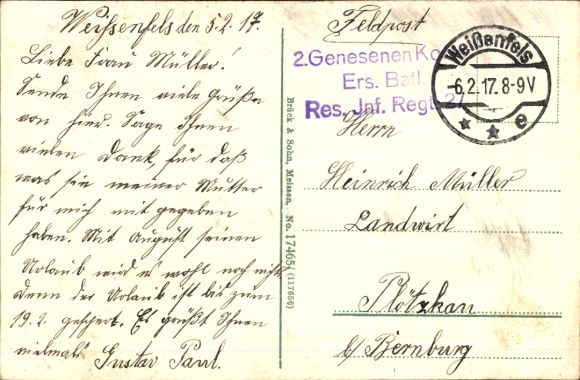 Weißenfels den 5.2.17.
Liebe Frau Müller!
Sende Ihnen viele Grüße
von hier. Sage Ihnen
vielen Dank, für daß
was sie meiner Mutter
für mich mit gegeben
haben. Mit August seinen
Urlaub wird es wohl noch nicht
denn der Urlaub ist bis zum
19.2. gesperrt. Es grüßt Ihnen
vielmals Gustav
Brück & Sohn, Meissen, No. 17465 (117656)
Feldpost
2. Genesenen Ko
Ers. Batl.
Res. Jnf. Regt. 27
Weißenfels
-6.2.17. 8-9V
* * e
Herrn
Heinrich Müller
Landwirt
Plötzkau
b/ Bernburg